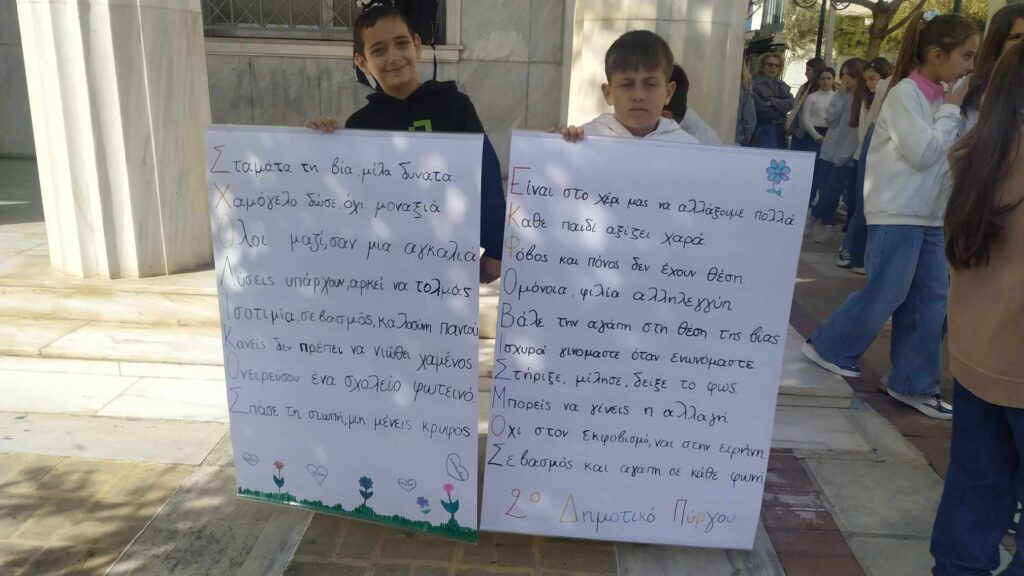 Σταμάτα τη βία, μίλα δυνατά
Χαμόγελο δώσε, όχι μοναξιά
Όλοι μαζί, σαν μια αγκαλιά
Λύσεις υπάρχουν, αρκεί να τολμάς
Ισοτιμία, σεβασμός, καλοσύνη παντού
Κανείς δεν πρέπει να νιώθει χαμένος
Ονειρεύσου ένα σχολείο φωτεινό
Σπάσε τη σιωπή, μη μένεις κρυφός
Είναι στο χέρι μας να αλλάξουμε πολλά
Κάθε παιδί αξίζει χαρά
Φόβος και πόνος δεν έχουν θέση
Ομόνοια, φιλία αλληλεγγύη
Βάλε την αγάπη στη θέση της βίας
Ισχυροί γινόμαστε όταν ενωνόμαστε
Στήριξε, μίλησε, δείξε το φως
Μπορείς να γίνεις η αλλαγή
Όχι στον εκφοβισμό, ναι στην ειρήνη
Σεβασμός και αγάπη σε κάθε φωνή
2° Δημοτικό Πύργου